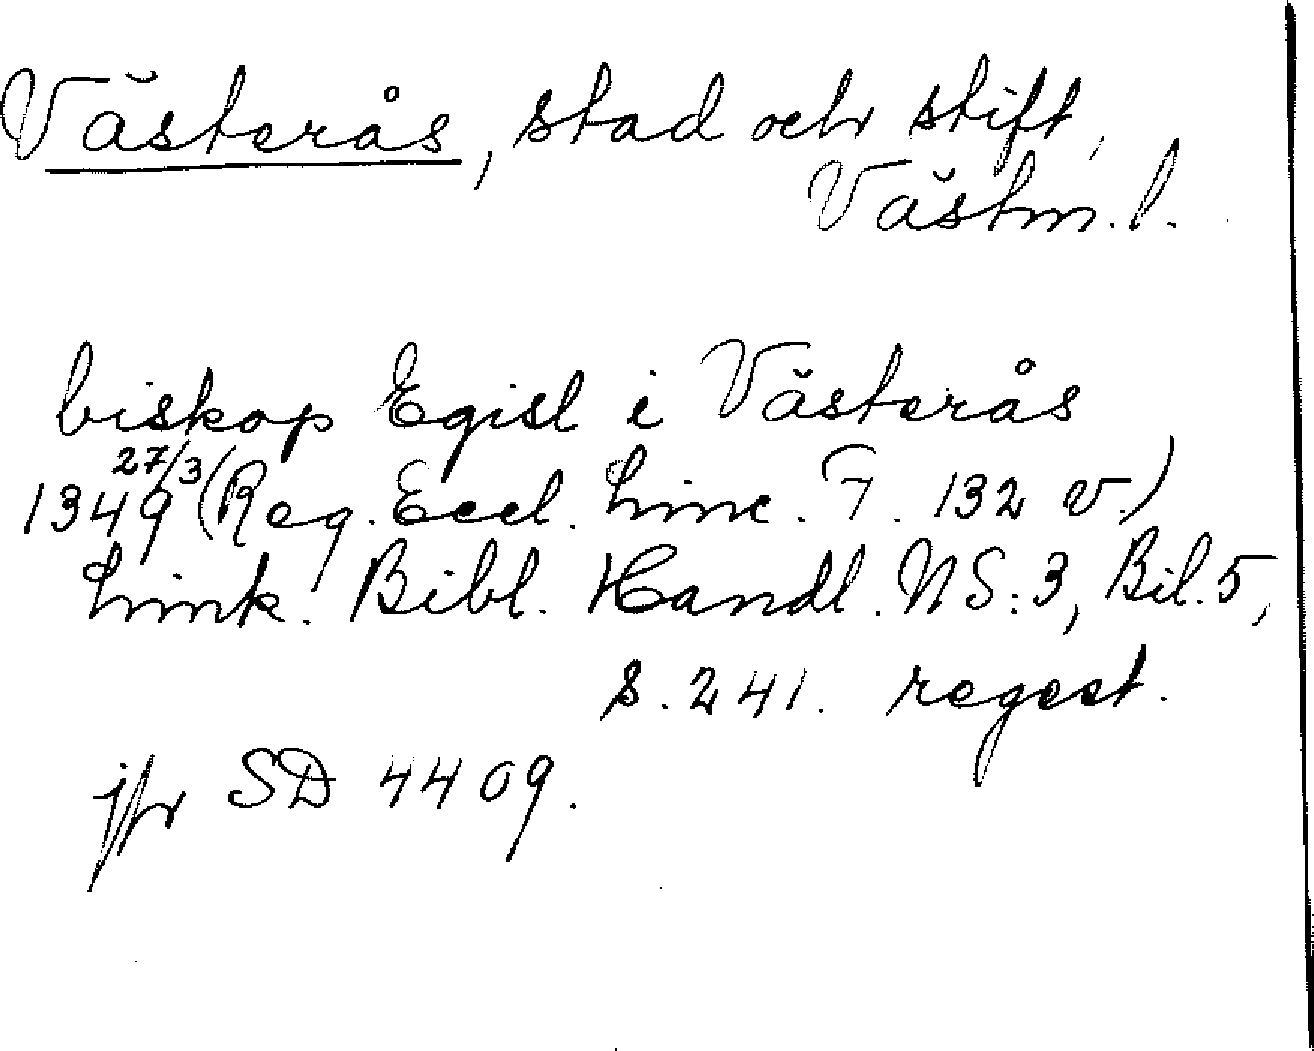 Västerås, stad och stift,
Västm. l.
biskop Egisl i Västerås
1349 27/3 (Reg. Eccl. Linc. F. 132 v.)
Link. Bibl. Handl. NS:3, Bil. 5,
s. 241. regest.
jfr SD 4409.